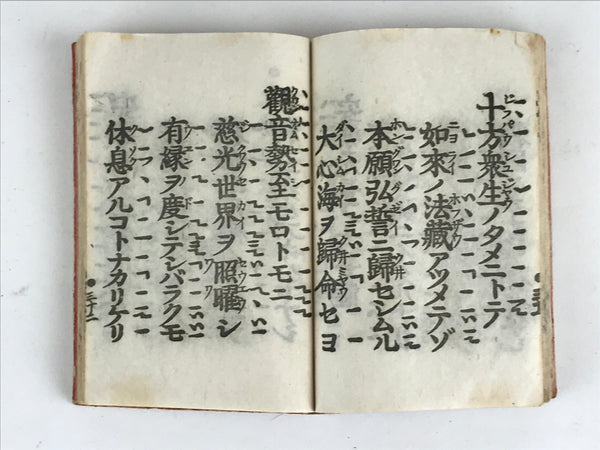 十方衆生ノタメニトテ
如來ノ法藏アツメテゾ
本願弘誓ニ歸セシムル
大心海ヲ歸命セヨ
觀音勢至モロトモニ
慈光世界ヲ照曜シ
有縁ヲ度シテシバラクモ
休息アルコトナカリケリ
三十二